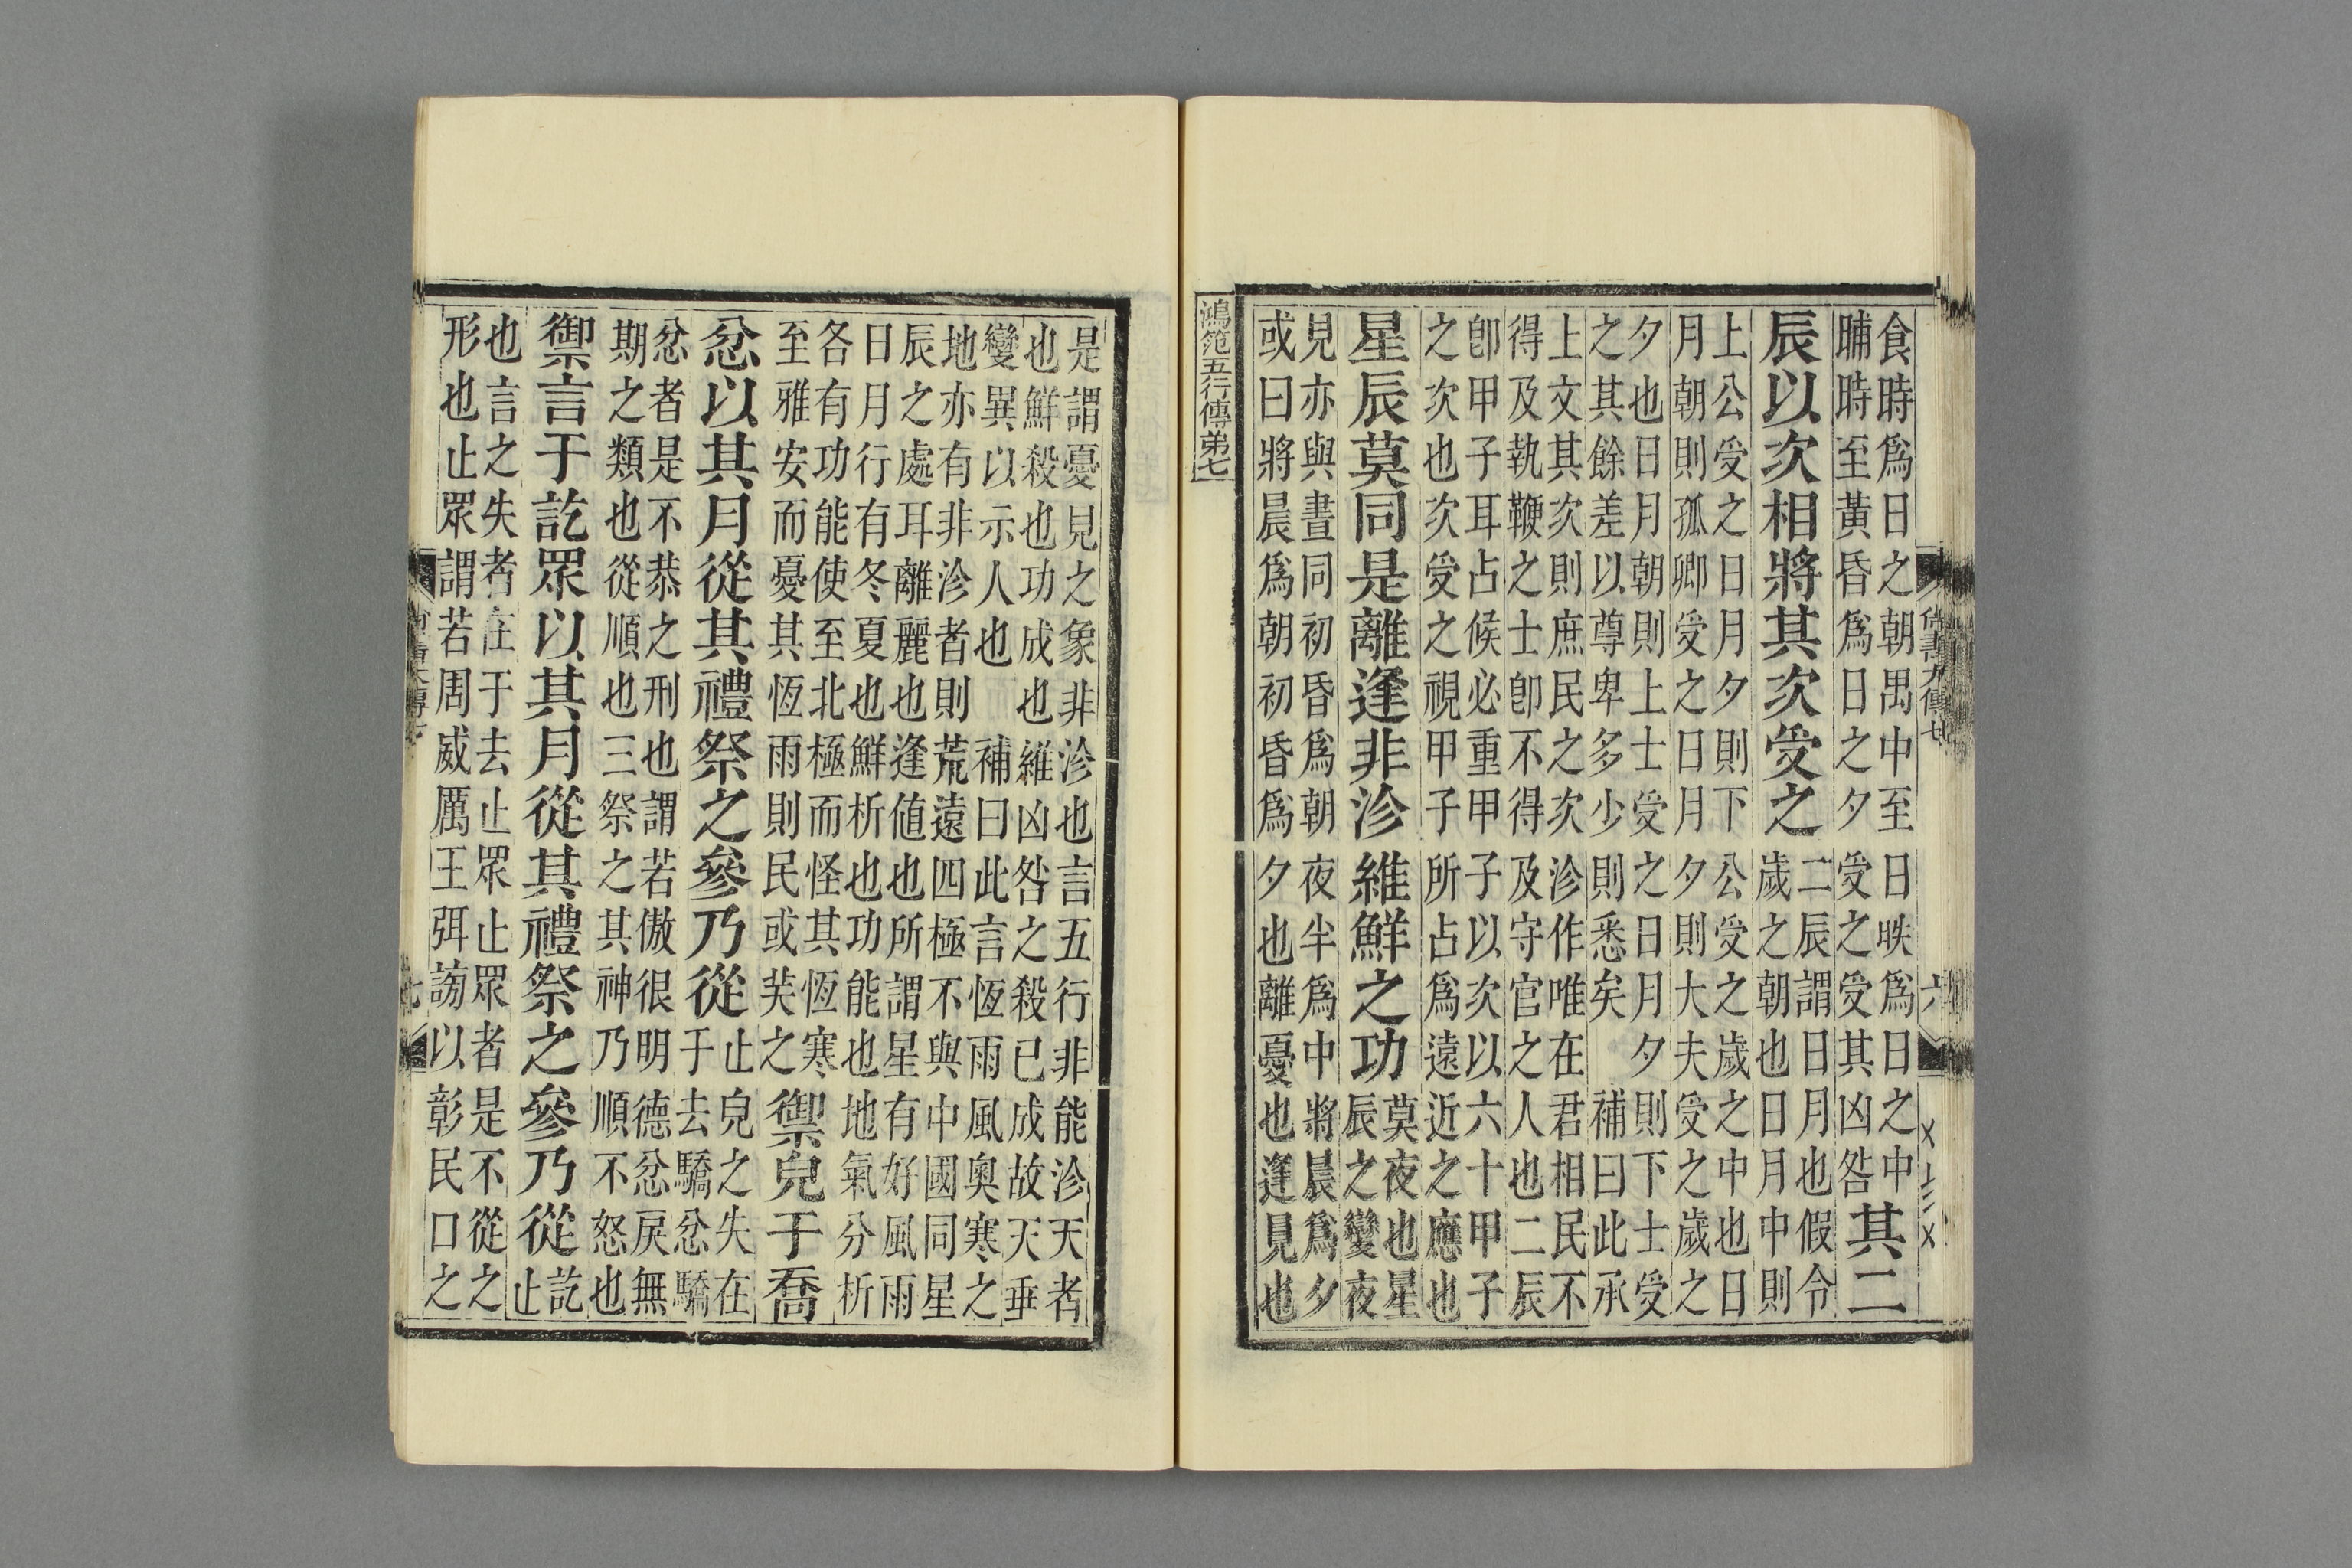 尚書大傳七　六
食時爲日之朝禺中至日昳爲日之中
晡時至黃昏爲日之夕受之受其凶咎
其二
辰以次相將其次受之
二辰謂日月也假令
歲之朝也日月中則
上公受之日月夕則下公受之歲之中也日
月朝則孤卿受之日月夕則大夫受之歲之
夕也日月朝則上士受之日月夕則下士受
之其餘差以尊卑多少則悉矣　補曰此承
上文其次則庶民之次沴作唯在君相民不
得及執鞭之士卽不得及守官之人也二辰
卽甲子耳占候必重甲子以次以六十甲子
之次也次受之視甲子所占爲遠近之應也
星辰莫同是離逢非沴維鮮之功
莫夜也星
辰之變夜
見亦與晝同初昏爲朝夜半爲中將晨爲夕
或曰將晨爲朝初昏爲夕也離憂也逢見也
鴻笵五行傳弟七
是謂憂見之象非沴也言五行非能沴天者
也鮮殺也功成也維凶咎之殺已成故天垂
變異以示人也　補曰此言恆雨風奧寒之
地亦有非沴者則荒遠四極不與中國同星
辰之處耳離麗也逢値也所謂星有好風雨
日月行有冬夏也鮮析也功能也地氣分析
各有功能使至北極而怪其恆寒
至雅安而憂其恆雨則民或芺之
禦皃于喬
忿以其月從其禮祭之參乃從
止皃之失在
于去驕忿驕
忿者是不恭之刑也謂若傲很明德忿戾無
期之類也從順也三祭之其神乃順不怒也
禦言于訖眾以其月從其禮祭之參乃從
訖
止
也言之失者在于去止眾止眾者是不從之
形也止眾謂若周威厲王弭謗以彰民口之